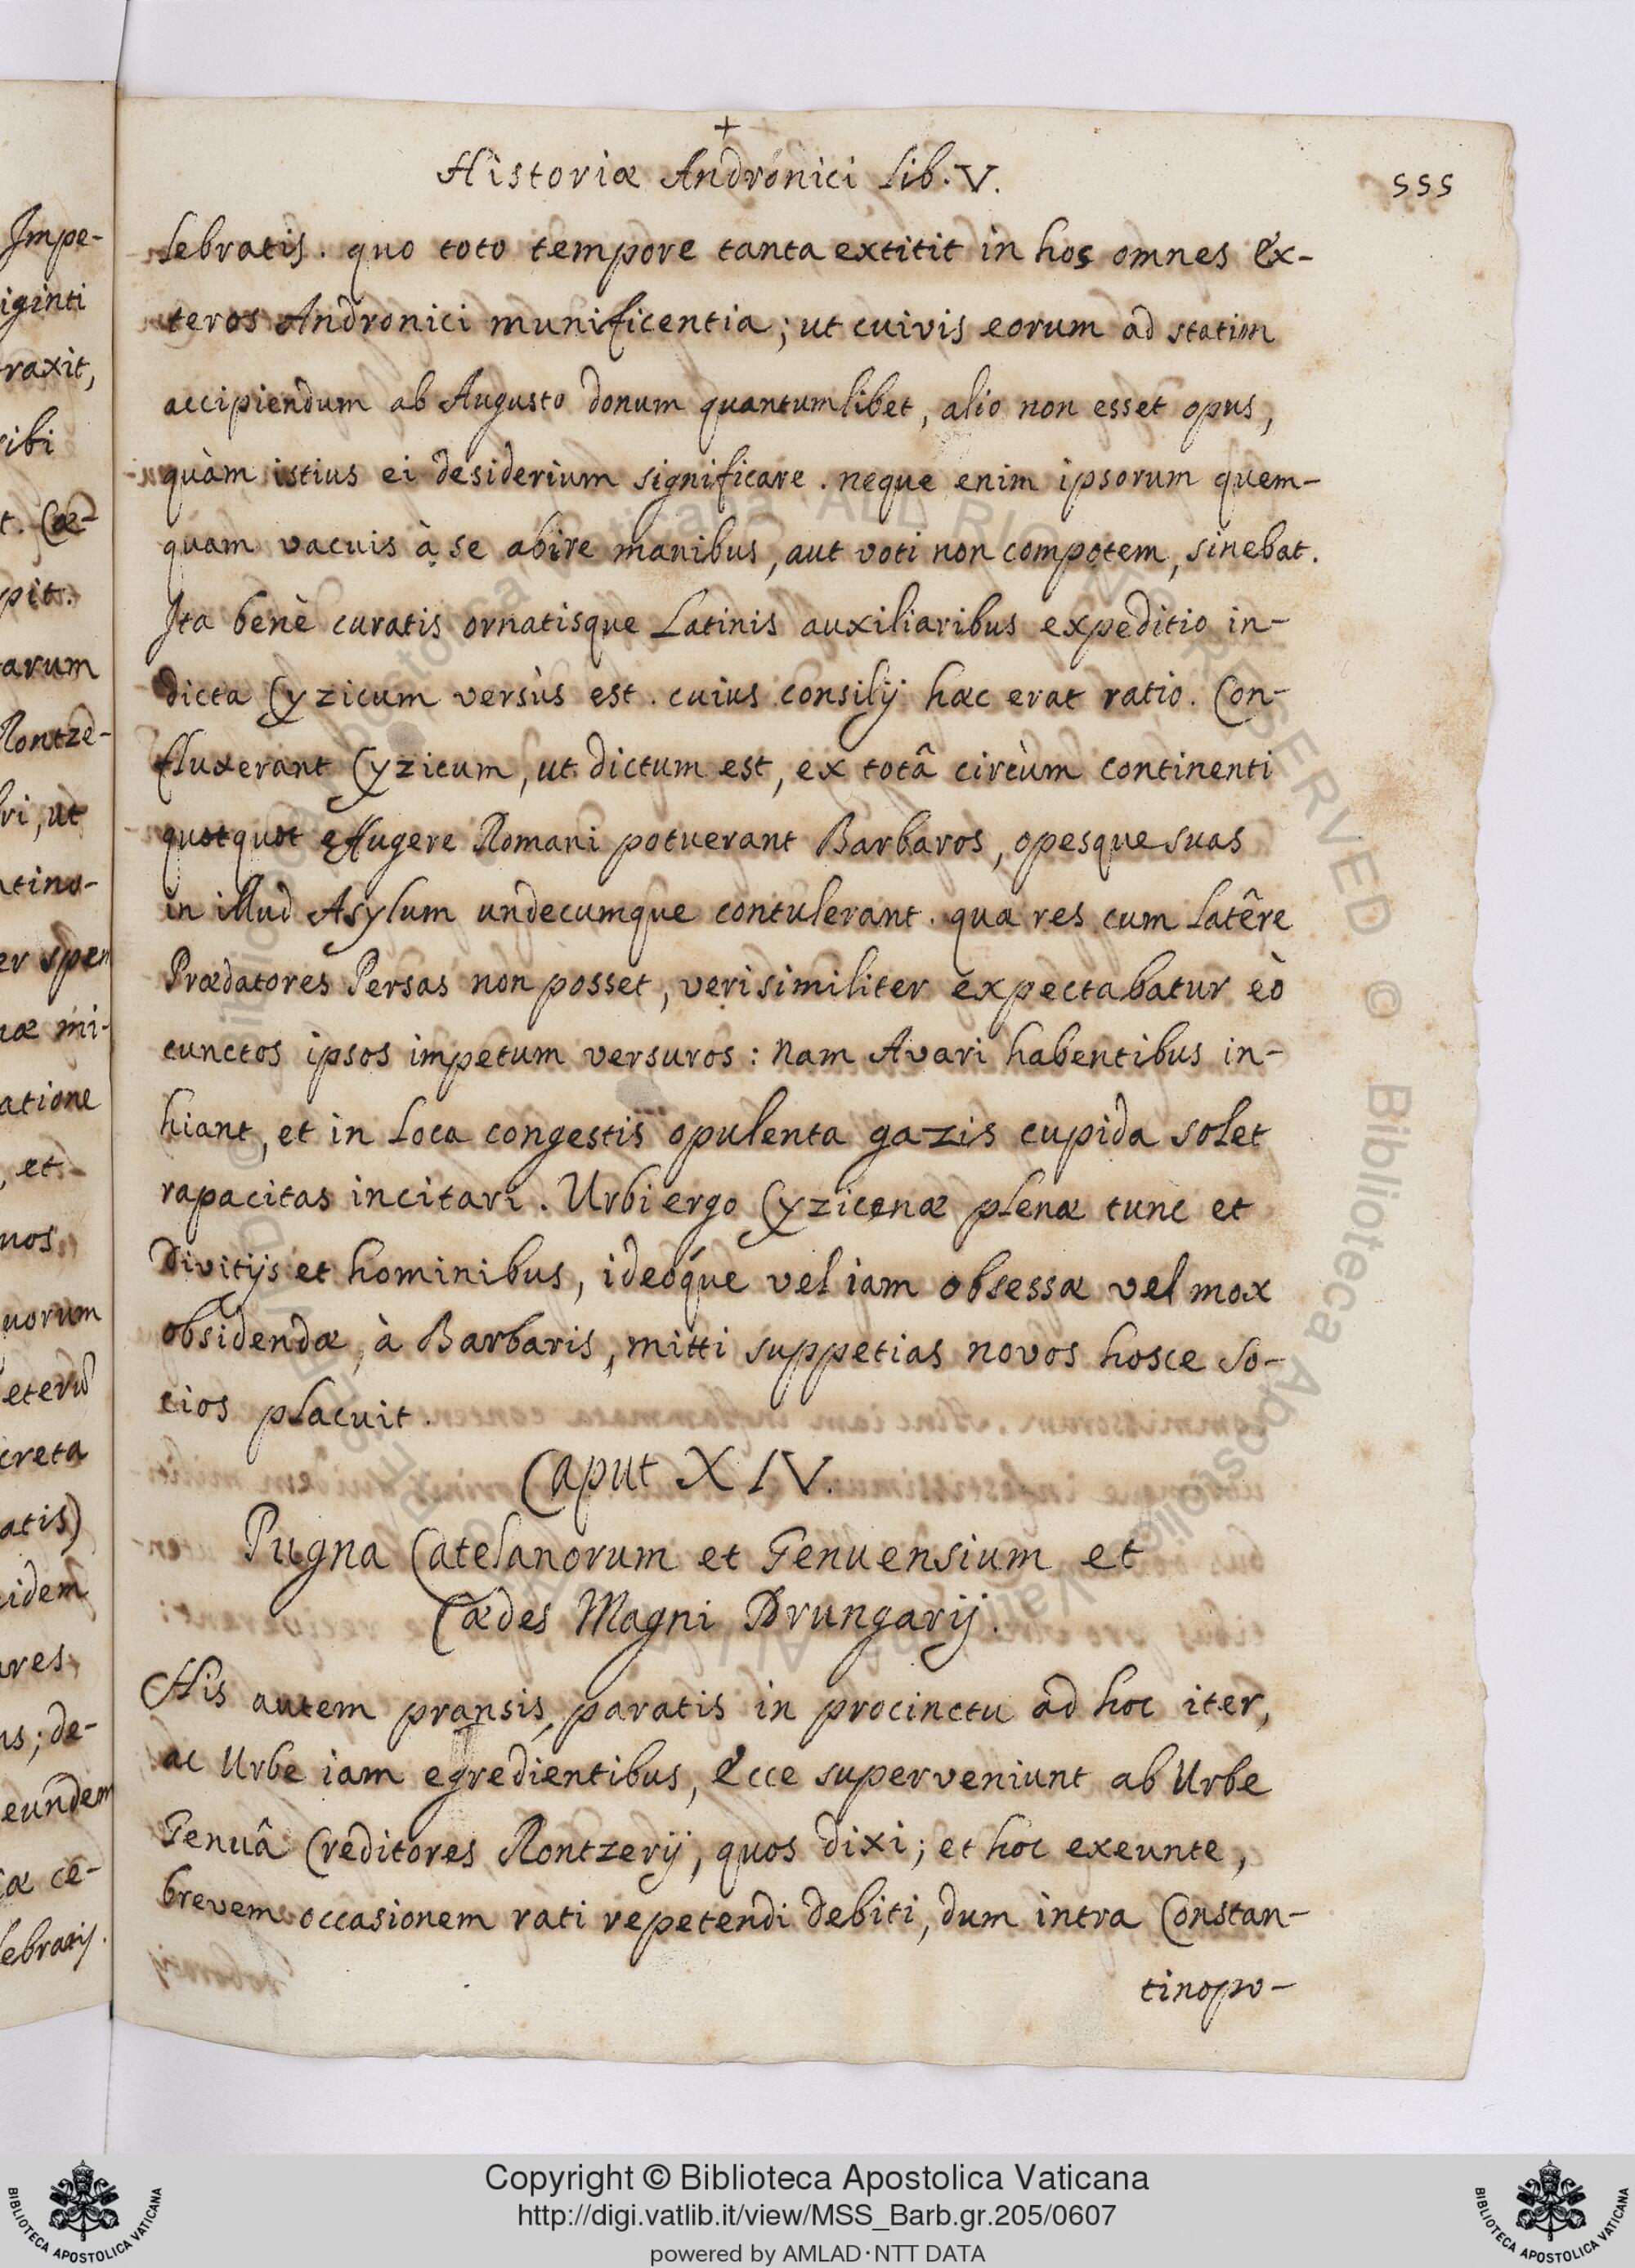 Impe-
iginti
raxit,
ibi
t. Cæ-
pit.
arum
Rontze-
ri, ut
tino-
er spem
uæ mi-
atione
, et
nos
uorum
eterũ
creta
atis)
idem
res
us; de-
eundem
iæ ce-
lebratis.
+
Historiæ Andronici Lib. V.
555
lebratis. quo toto tempore tanta extitit in hos omnes Ex-
teros Andronici munificentia; ut cuivis eorum ad statim
accipiendum ab Augusto donum quantumlibet, alio non esset opus,
quàm istius ei desiderium significare. neque enim ipsorum quem-
quam vacuis à se abire manibus, aut voti non compotem, sinebat.
Ita benè curatis ornatisque Latinis auxiliaribus expeditio in-
dicta Cyzicum versùs est. cuius consilij hæc erat ratio. Con-
fluxerant Cyzicum, ut dictum est, ex totâ circùm continenti
quotquot effugere Romani potuerant Barbaros, opesque suas
in illud Asylum undecumque contulerant. quæ res cum latêre
Prædatores Persas non posset, verisimiliter expectabatur eò
cunctos ipsos impetum versuros: nam Avari habentibus in-
hiant, et in Loca congestis opulenta gazis cupida solet
rapacitas incitari. Urbi ergo Cyzicenæ plenæ tunc et
Divitijs et hominibus, ideóque vel iam obsessæ vel mox
obsidendæ, à Barbaris, mitti suppetias novos hosce so-
cios placuit.
Caput XIV.
Pugna Catelanorum et Genuensium et
Cædes Magni Drungarij.
His autem pransis, paratis in procinctu ad hoc iter,
ac Urbe iam egredientibus, Ecce superveniunt ab Urbe
Genuâ Creditores Rontzerij, quos dixi; et hoc exeunte,
brevem occasionem rati repetendi debiti, dum intra Constan-
tinopo-
Copyright © Biblioteca Apostolica Vaticana
http://digi.vatlib.it/view/MSS_Barb.gr.205/0607
powered by AMLAD·NTT DATA
BIBLIOTECA APOSTOLICA VATICANA
BIBLIOTECA APOSTOLICA VATICANA